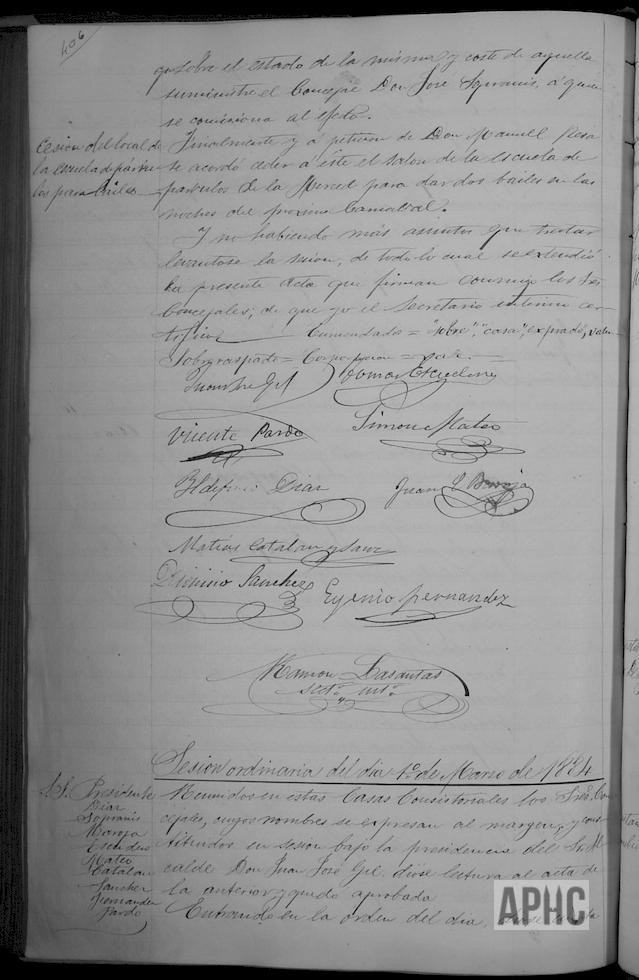 406
que sobre el estado de la misma y coste de aquella
suministre el Concejal Don José Sopranis, á quien
se comisiona al efecto.
Cesion del local de
la escuela de párvu
los para bailes
Finalmente y á peticion de Don Manuel
se acordó ceder á este el salon de la escuela de
parvulos de la Merced para dar dos bailes en las
noches del proximo Carnabal.
Y no habiendo más asuntos que tratar
levantose la sesion, de todo lo cual se extendió
la presente Acta que firman conmigo los Sres
Concejales; de que yo el Secretario interino cer-
tifico Enmendado = "sobre", "casa",
Sobreraspado = Corporacion =
Juan José Gil Tomas Escudero
Vicente Pardo Simon Mateo
Yldefonso Diaz Juan Baroja
Matias Catalan y Sanz
Dionisio Sanchez Eugenio Fernandez
Ramon Lasantas
Sectº intº
Sesion ordinaria del dia 1º de Marzo de 1884
S. Presidente
Diaz
Sopranis
Baroja
Escudero
Mateo
Catalan
Sanchez
Fernandez
Pardo
Reunidos en estas Casas Consistoriales los Sres. Con
cejales, cuyos nombres se expresan al margen, y cons
tituidos en sesion bajo la presidencia del Sr. Al
calde Don Juan José Gil, dióse lectura al acta de
la anterior y quedó aprobada
Entrando en la orden del dia, dióse cuenta
APHC